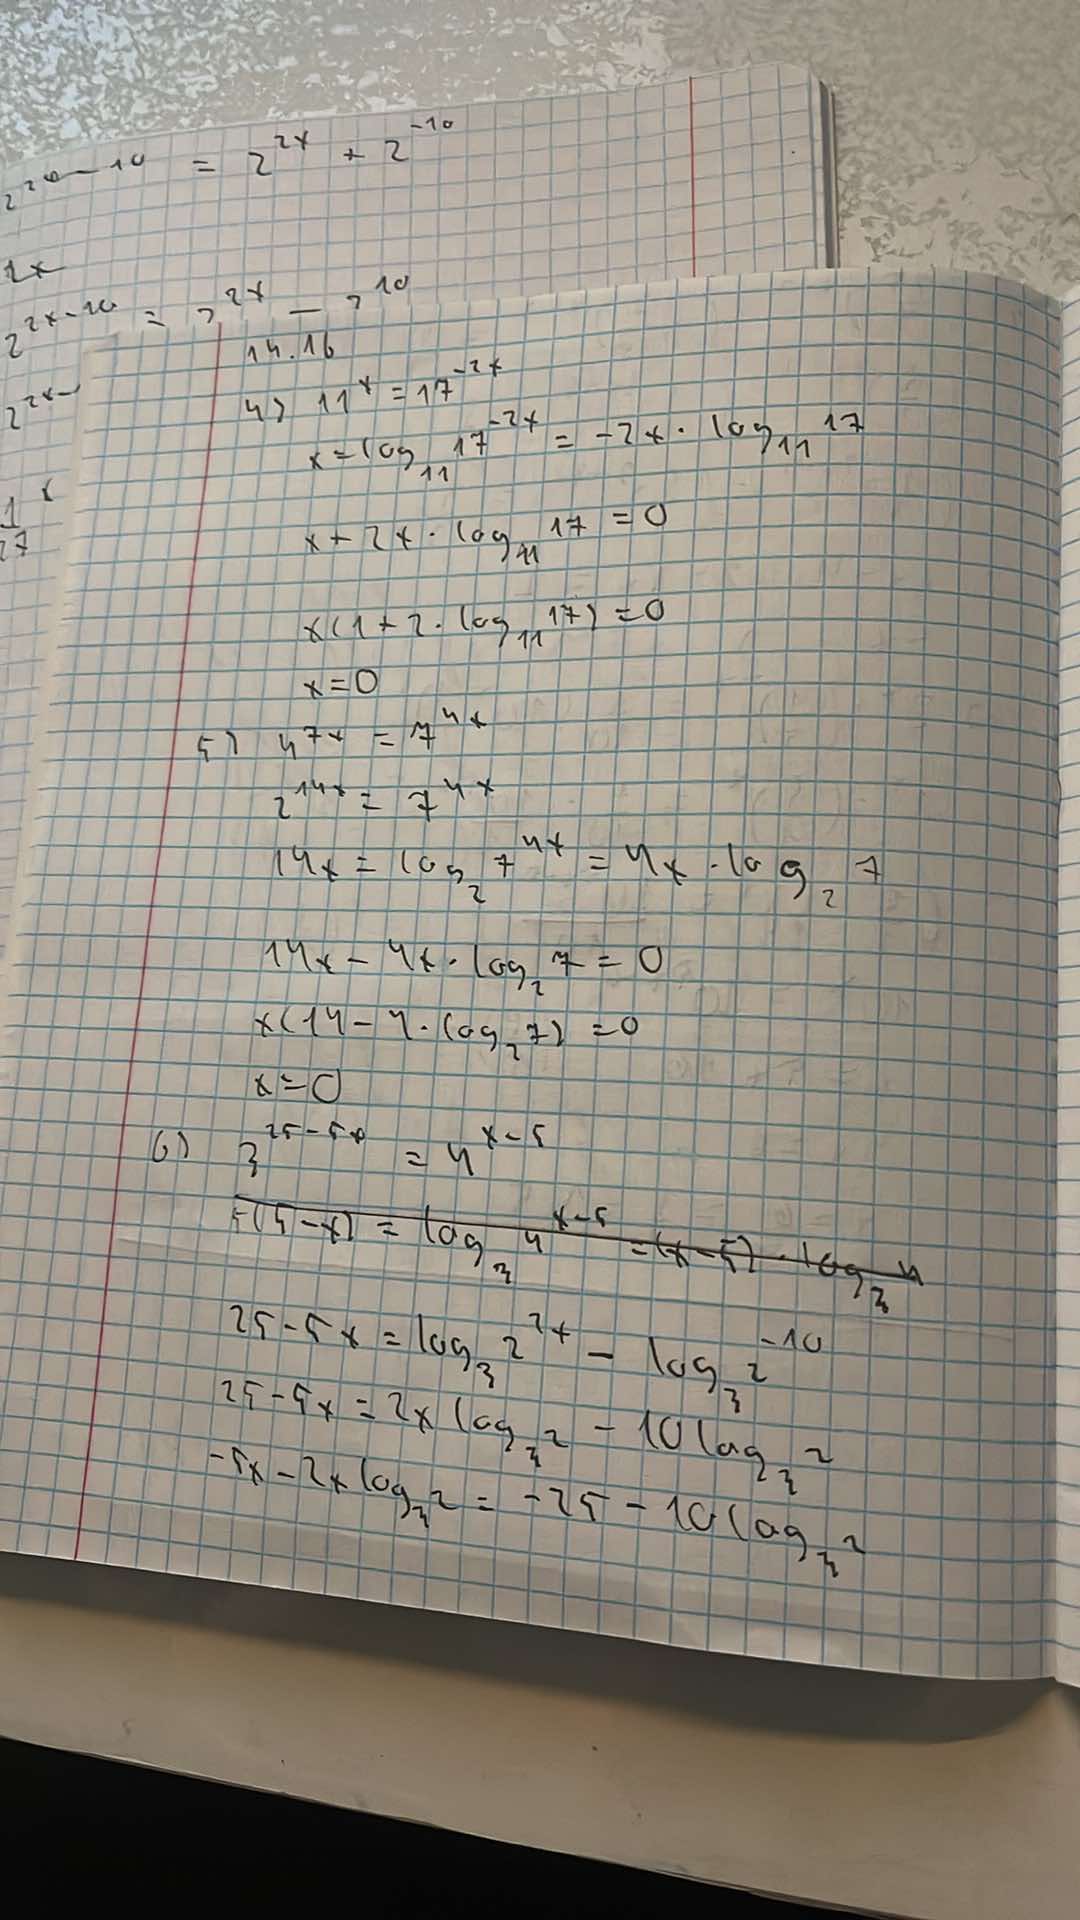 2^{2x-10} = 2^{2x} + 2^{-10}
2x
2^{2x-10} = 2^{2x} - 2^{10}
2^{2x-
14.16
4) 11^x = 17^{-2x}
x = log_{11} 17^{-2x} = -2x · log_{11} 17
x + 2x · log_{11} 17 = 0
x(1 + 2 · log_{11} 17) = 0
x = 0
5) 4^{7x} = 7^{4x}
2^{14x} = 7^{4x}
14x = log_2 7^{4x} = 4x · log_2 7
14x - 4x · log_2 7 = 0
x(14 - 4 · log_2 7) = 0
x = 0
6) 3^{25-5x} = 4^{x-5}
5(5-x) = log_3 4^{x-5} = (x-5) · log_3 4
25-5x = log_3 2^{2x} - log_3 2^{-10}
25-5x = 2x log_3 2 - 10 log_3 2
-5x - 2x log_3 2 = -25 - 10 log_3 2